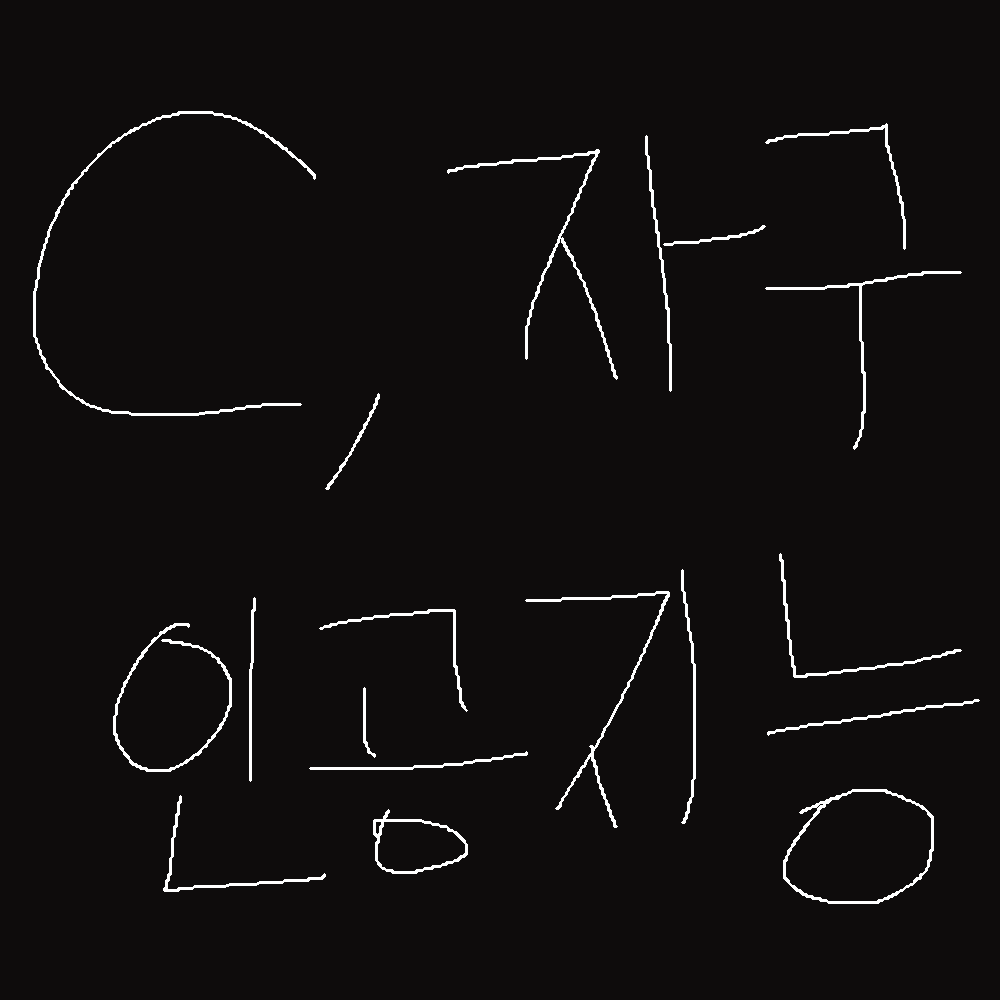 C, 자구
인공지능